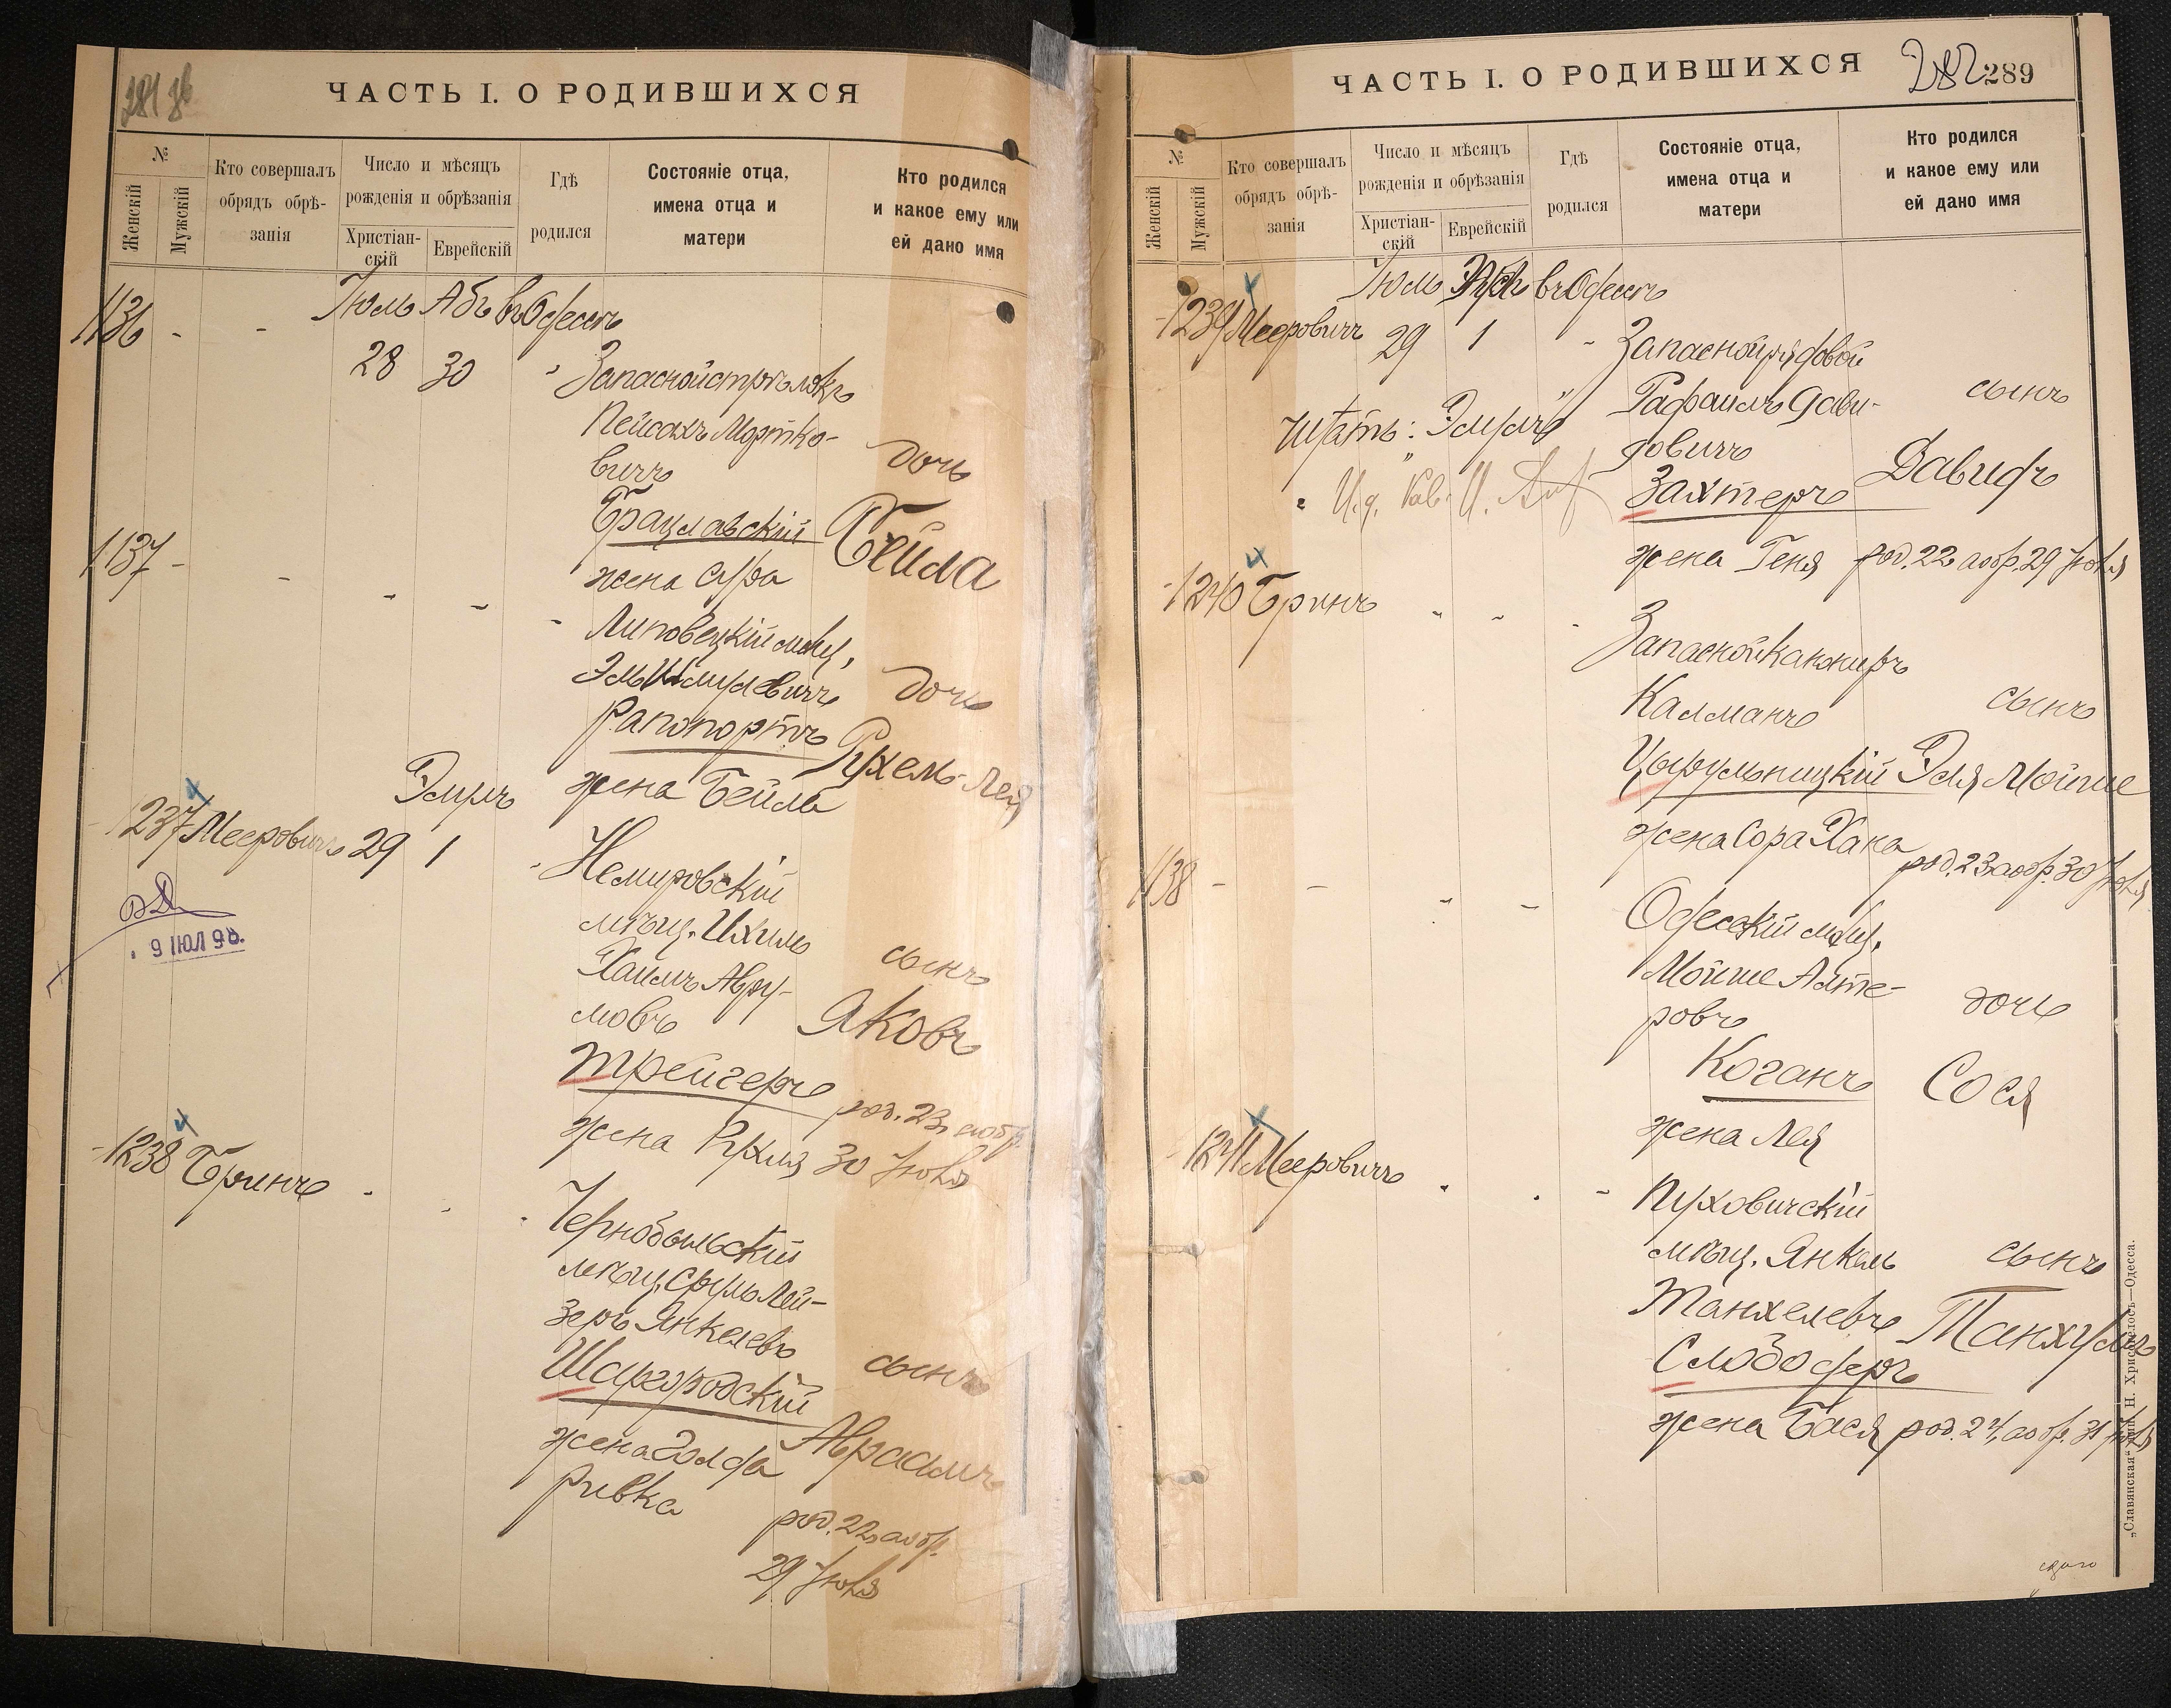 ЧАСТЬ I. О РОДИВШИХСЯ
№
Женскій
Мужскій
Кто совершалъ
обрядъ обрѣ-
занія
Число и мѣсяцъ
рожденія и обрѣзанія
Христіан-
скій
Еврейскій
Гдѣ
родился
Состояніе отца,
имена отца и
матери
Кто родился
и какое ему или
ей дано имя
Іюль Абъ въ Одессѣ
1136 - - 28 30 "
Запасной стрѣлокъ
Пейсахъ Мортко-
вичъ
дочь
Брацлавскій
Бейла
жена Сура
1137 - - - - -
Липовецкій мѣщ.
Эль Шмулевичъ
дочь
Рапопортъ
Рухель-Лея
жена Бейла
Элулъ
1237 Мееровичъ 29 1 -
Немировскій
мѣщ. Ихиль
Хаимъ Авру-
мовъ
сынъ
Яковъ
Трейгеръ
род. 23, а обр.
жена Рухля
30 Іюля
9 ІЮЛ 98.
1238 Бринъ - - -
Чернобыльскій
мѣщ. Сруль Лей-
зеръ Янкелевъ
сынъ
Шаргородскій
жена Голда
Авраамъ
Ривка
род. 22, а обр.
29 Іюля
ЧАСТЬ I. О РОДИВШИХСЯ
282 289
№
Женскій
Мужскій
Кто совершалъ
обрядъ обрѣ-
занія
Число и мѣсяцъ
рожденія и обрѣзанія
Христіан-
скій
Еврейскій
Гдѣ
родился
Состояніе отца,
имена отца и
матери
Кто родился
и какое ему или
ей дано имя
Іюль въ Одессѣ
1239 Мееровичъ 29 1 -
Запасной рядовой
Рафаилъ Дави-
довичъ
сынъ
Читать: "Элулъ"
Захтеръ
Давидъ
жена Геня
род. 22 а обр. 29 Іюля
1240 Бринъ - - -
Запасной канониръ
Калманъ
сынъ
Цырульницкій
Эля Мойше
жена Сора Хана
род. 23 а обр. 30 Іюля
1138 - - - -
Одесскій мѣщ.
Мойше Алте-
ровъ
дочь
Коганъ
Сося
жена Лея
1241 Мееровичъ - - -
Пуховичскій
мѣщ. Янкель
сынъ
Танхелевъ
Танхумъ
Слободеръ
жена Бася
род. 24, а обр. 31 Іюля
„Славянская" тип. Н. Хрисогелосъ—Одесса.